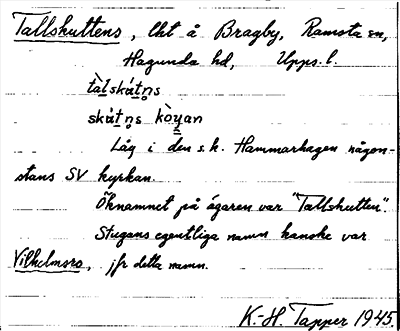 Tallskuttens, lht å Bragby, Ramsta sn,
Hagunda hd, Upps. l.
tàlskát̥ns
skát̥ns kòyan
Låg i den s.k. Hammarhagen någon-
stans SV kyrkan.
Öknamnet på ägaren var "Tallskutten".
Stugans egentliga namn kanske var
Vilhelmsro, jfr detta namn.
K.-H. Tapper 1945.